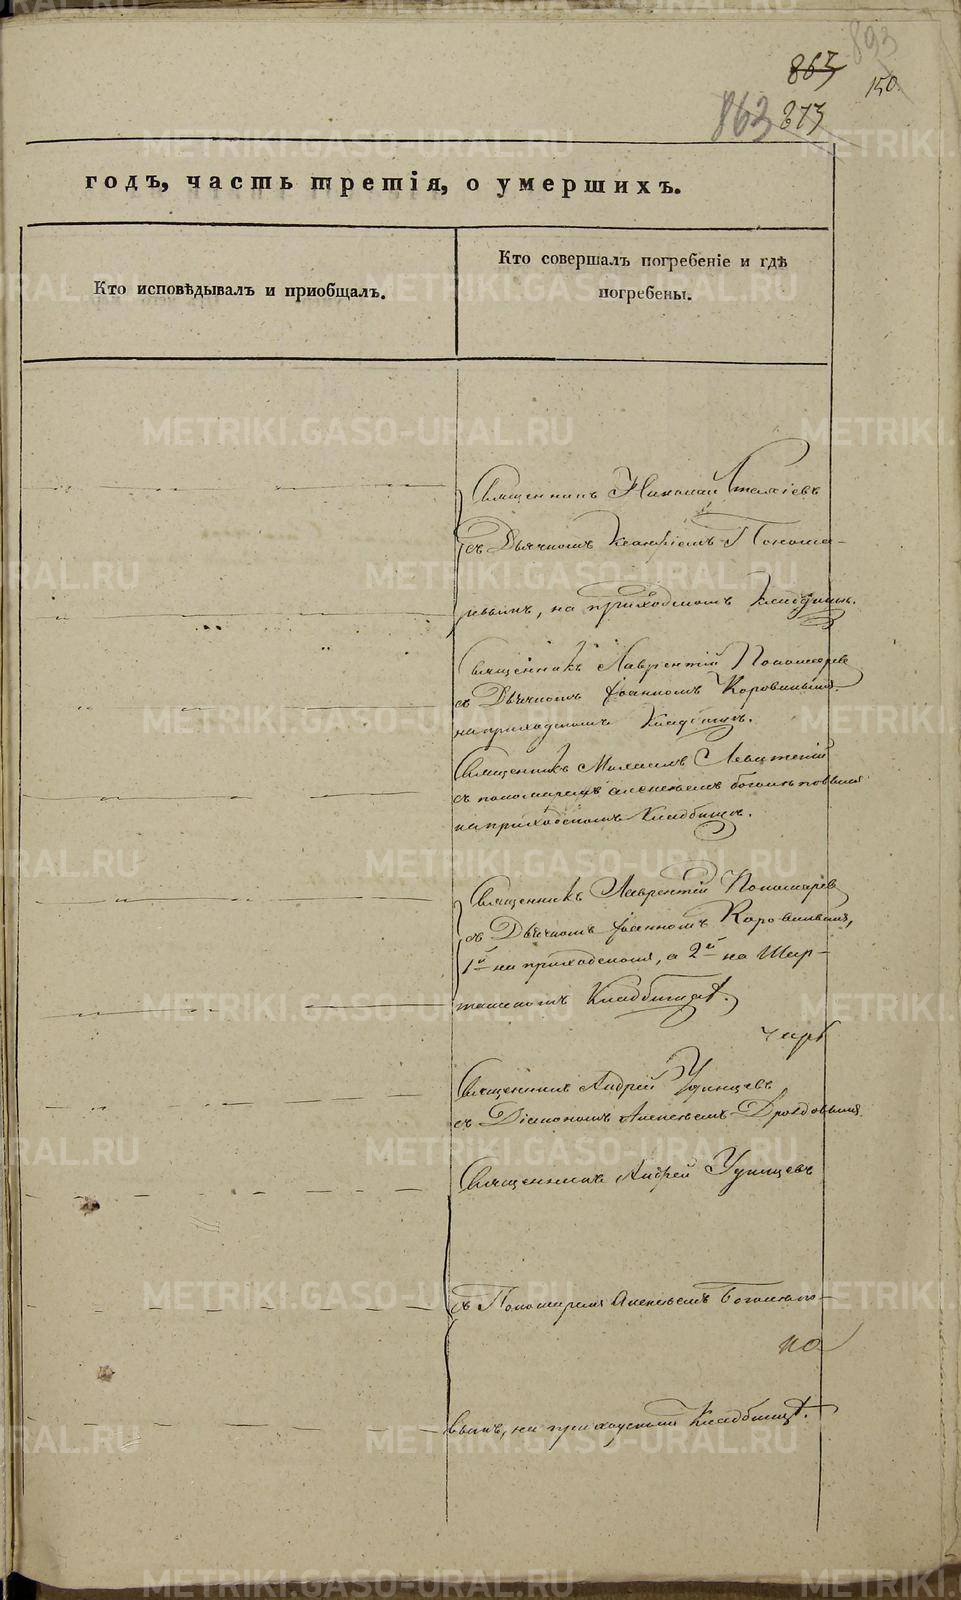 893
867
150.
863 873
годъ, часть третія, о умершихъ.
Кто исповѣдывалъ и приобщалъ.
Кто совершалъ погребеніе и гдѣ
погребены.
Священникъ Николай
съ Дьячкомъ Понома-
ревымъ, на приходскомъ Кладбищѣ.
Священникъ Лаврентій Пономаревъ
съ Дьячкомъ Іоанномъ Коровинымъ
на приходскомъ Кладбищѣ.
Священникъ Михаилъ Левитскій
съ пономаремъ Алексѣемъ Боголѣповымъ
на приходскомъ Кладбищѣ.
Священникъ Лаврентій Пономаревъ
съ Дьячкомъ Іоанномъ Коровинымъ,
1й на приходскомъ, а 2й на Шар-
ташскомъ Кладбищѣ.
Священникъ Андрей Удинцевъ
съ Діакономъ Алексѣемъ Дроздовымъ
Священникъ Андрей Удинцевъ
съ Пономаремъ Алексѣемъ Боголѣпо-
вымъ, на приходскомъ Кладбищѣ.
METRIKI.GASO-URAL.RU